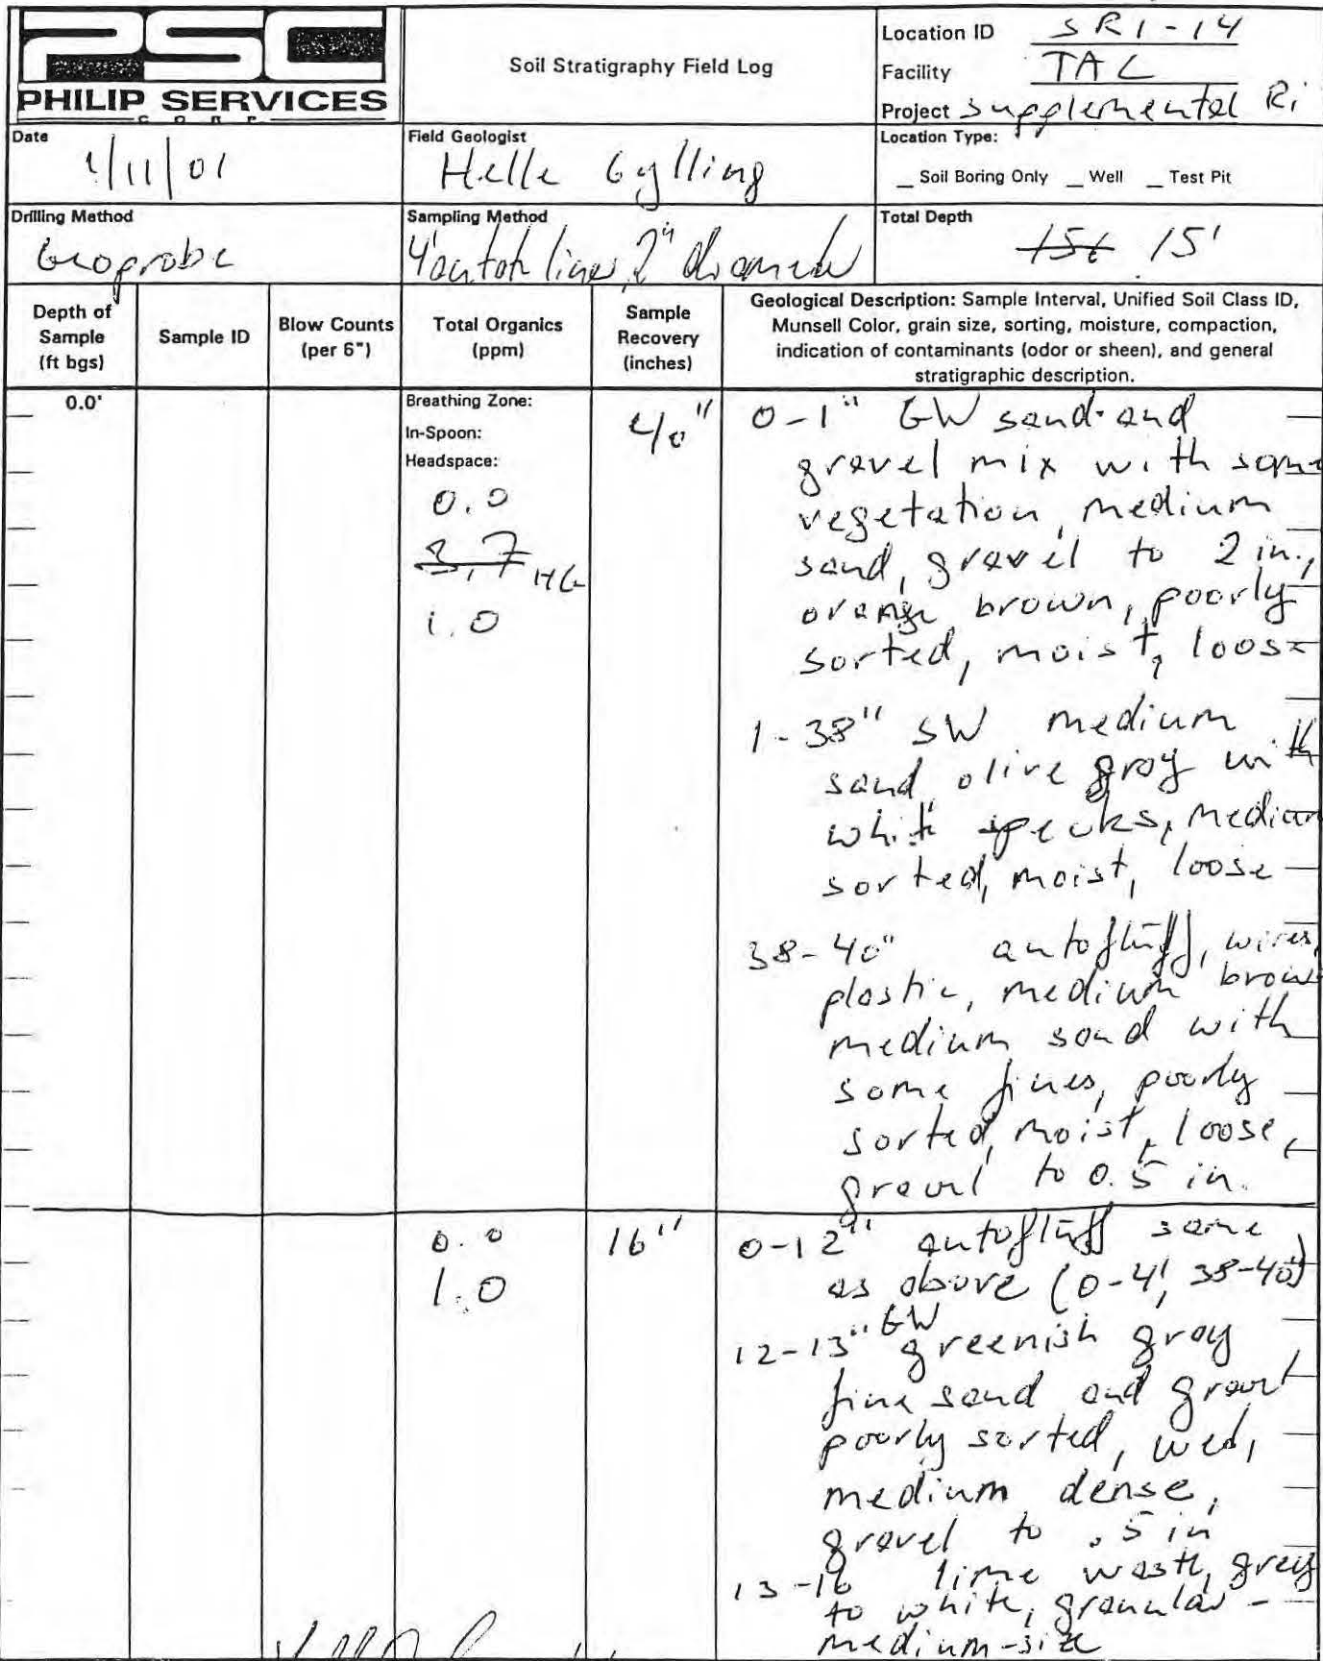 PSC
PHILIP SERVICES
CORP
Soil Stratigraphy Field Log
Location ID SRI-14
Facility TAC
Project Supplemental Ri
Date
1/11/01
Field Geologist
Helle Gylling
Location Type:
_ Soil Boring Only _ Well _ Test Pit
Drilling Method
Geoprobe
Sampling Method
4' liner 2"
Total Depth
15'
Depth of
Sample
(ft bgs)
Sample ID
Blow Counts
(per 6")
Total Organics
(ppm)
Sample
Recovery
(inches)
Geological Description: Sample Interval, Unified Soil Class ID,
Munsell Color, grain size, sorting, moisture, compaction,
indication of contaminants (odor or sheen), and general
stratigraphic description.
0.0'
Breathing Zone:
In-Spoon:
Headspace:
0.0
3.7 HG
1.0
40"
0-1" GW sand and
gravel mix with some
vegetation, medium
sand, gravel to 2 in.,
orange brown, poorly
sorted, moist, loose
1-38" SW medium
sand olive gray with
white specks, medium
sorted, moist, loose
38-40" autofluff, wires,
plastic, medium brown
medium sand with
some fines, poorly
sorted, moist, loose,
gravel to 0.5 in.
0.0
1.0
16"
0-12" autofluff same
as above (0-4', 38-40")
12-13" GW greenish gray
fine sand and gravel
poorly sorted, wed,
medium dense,
gravel to .5 in
13-16 lime waste, grey
to white, granular -
medium-size